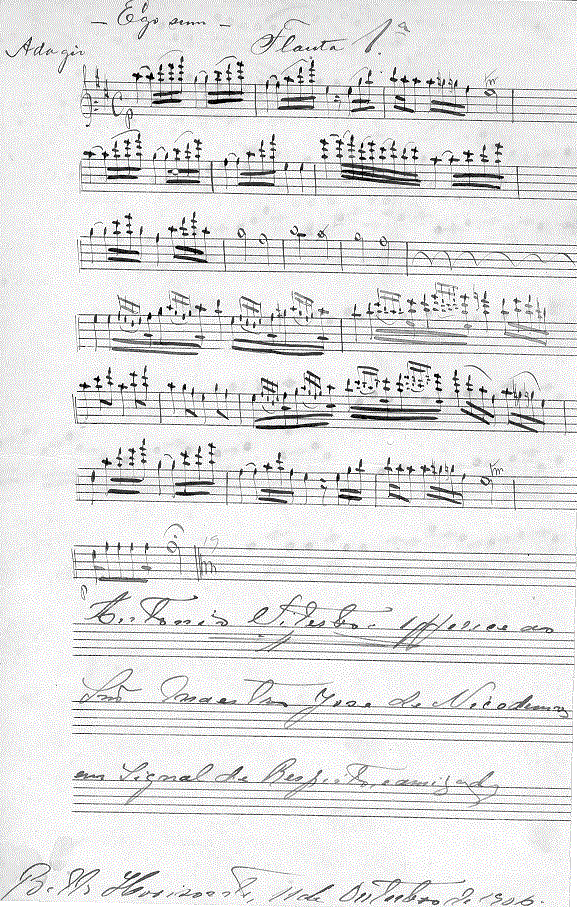 - Ego sum -
Adagio Flauta 1.ª
p
19
Antonio offerece ao
Snr Maestro Jose de Nicodemos
em Signal de Respeito e amizade
Bello Horizonte, 11 de Outubro de 1906.